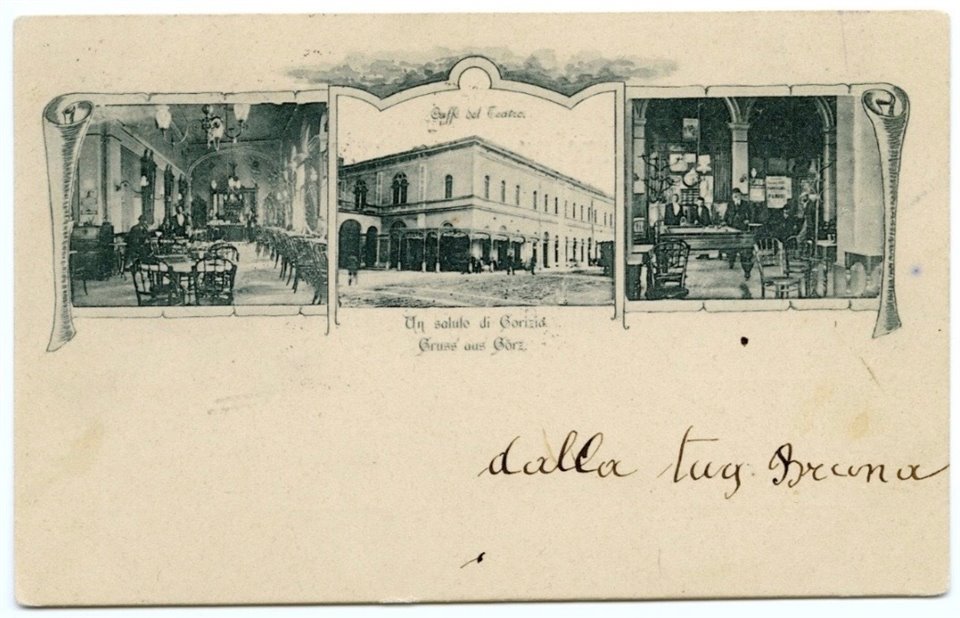 Caffè del Teatro.
Un saluto di Gorizia.
Gruss aus Görz.
dalla tug. Bruna